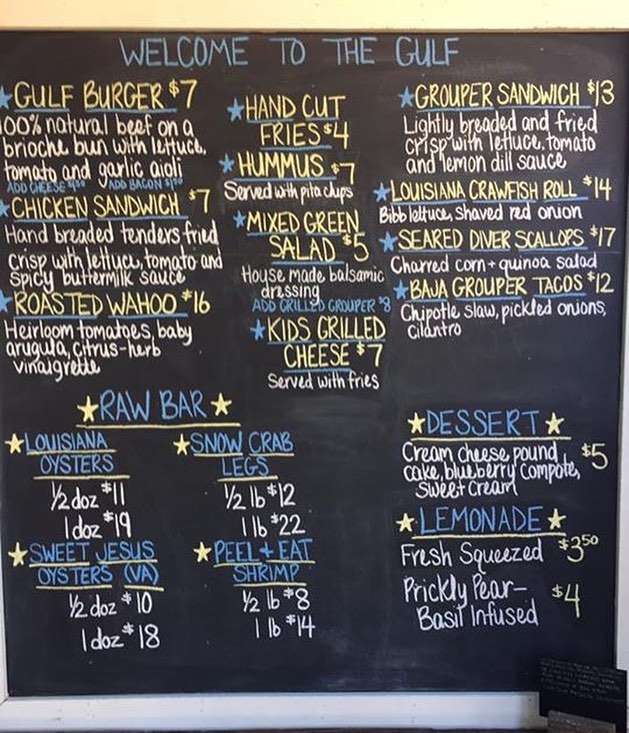 WELCOME TO THE GULF
GULF BURGER $7
100% natural beef on a
brioche bun with lettuce,
tomato and garlic aioli
ADD CHEESE ADD BACON
CHICKEN SANDWICH $7
Hand breaded tenders fried
crisp with lettuce, tomato and
spicy buttermilk sauce
ROASTED WAHOO $16
Heirloom tomatoes, baby
arugula, citrus-herb
vinaigrette
HAND CUT
FRIES $4
HUMMUS $7
Served with pita chips
MIXED GREEN
SALAD $5
House made balsamic
dressing
ADD GRILLED GROUPER $8
KIDS GRILLED
CHEESE $7
Served with fries
GROUPER SANDWICH $13
Lightly breaded and fried
crisp with lettuce, tomato
and lemon dill sauce
LOUISIANA CRAWFISH ROLL $14
Bibb lettuce, shaved red onion
SEARED DIVER SCALLOPS $17
Charred corn + quinoa salad
BAJA GROUPER TACOS $12
Chipotle slaw, pickled onions,
cilantro
RAW BAR
LOUISIANA
OYSTERS
1/2 doz $11
1 doz $19
SWEET JESUS
OYSTERS (VA)
1/2 doz $10
1 doz $18
SNOW CRAB
LEGS
1/2 lb $12
1 lb $22
PEEL + EAT
SHRIMP
1/2 lb $8
1 lb $14
DESSERT
Cream cheese pound
cake, blueberry compote, $5
sweet cream
LEMONADE
Fresh Squeezed $3.50
Prickly Pear-
Basil Infused $4